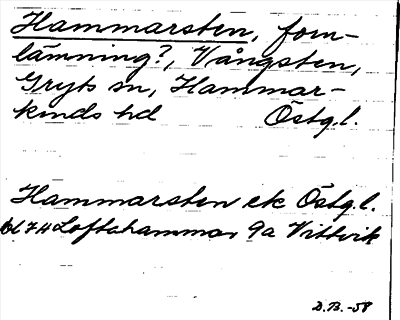 Hammarsten, forn-
lämning?, Vångsten,
Gryts sn, Hammar-
kinds hd Östg.l.
Hammarsten ek Östg.l.
bl 74 Loftahammar 9a Vittvik
D.B.-58